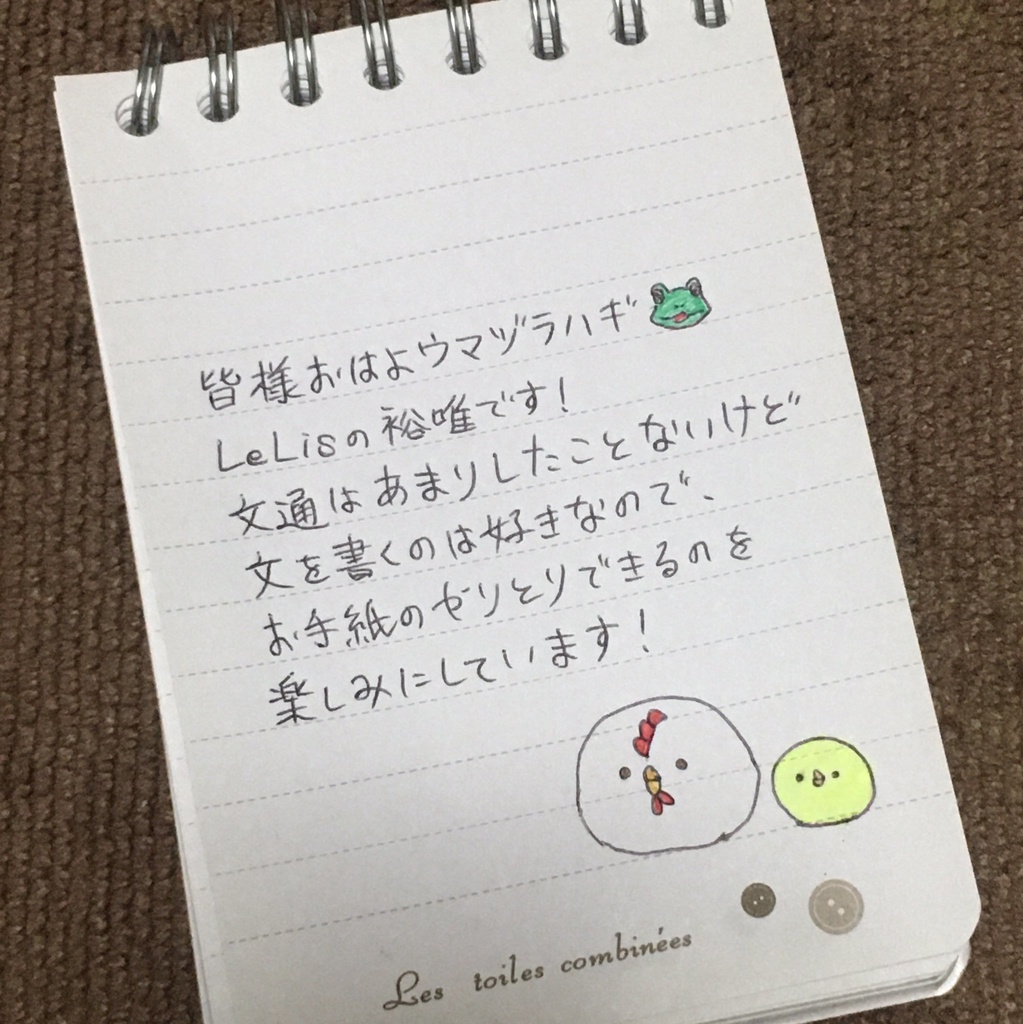 皆様おはよウマヅラハギ
LeLisの裕唯です!
文通はあまりしたことないけど
文を書くのは好きなので、
お手紙のやりとりできるのを
楽しみにしています!
Les toiles combinées